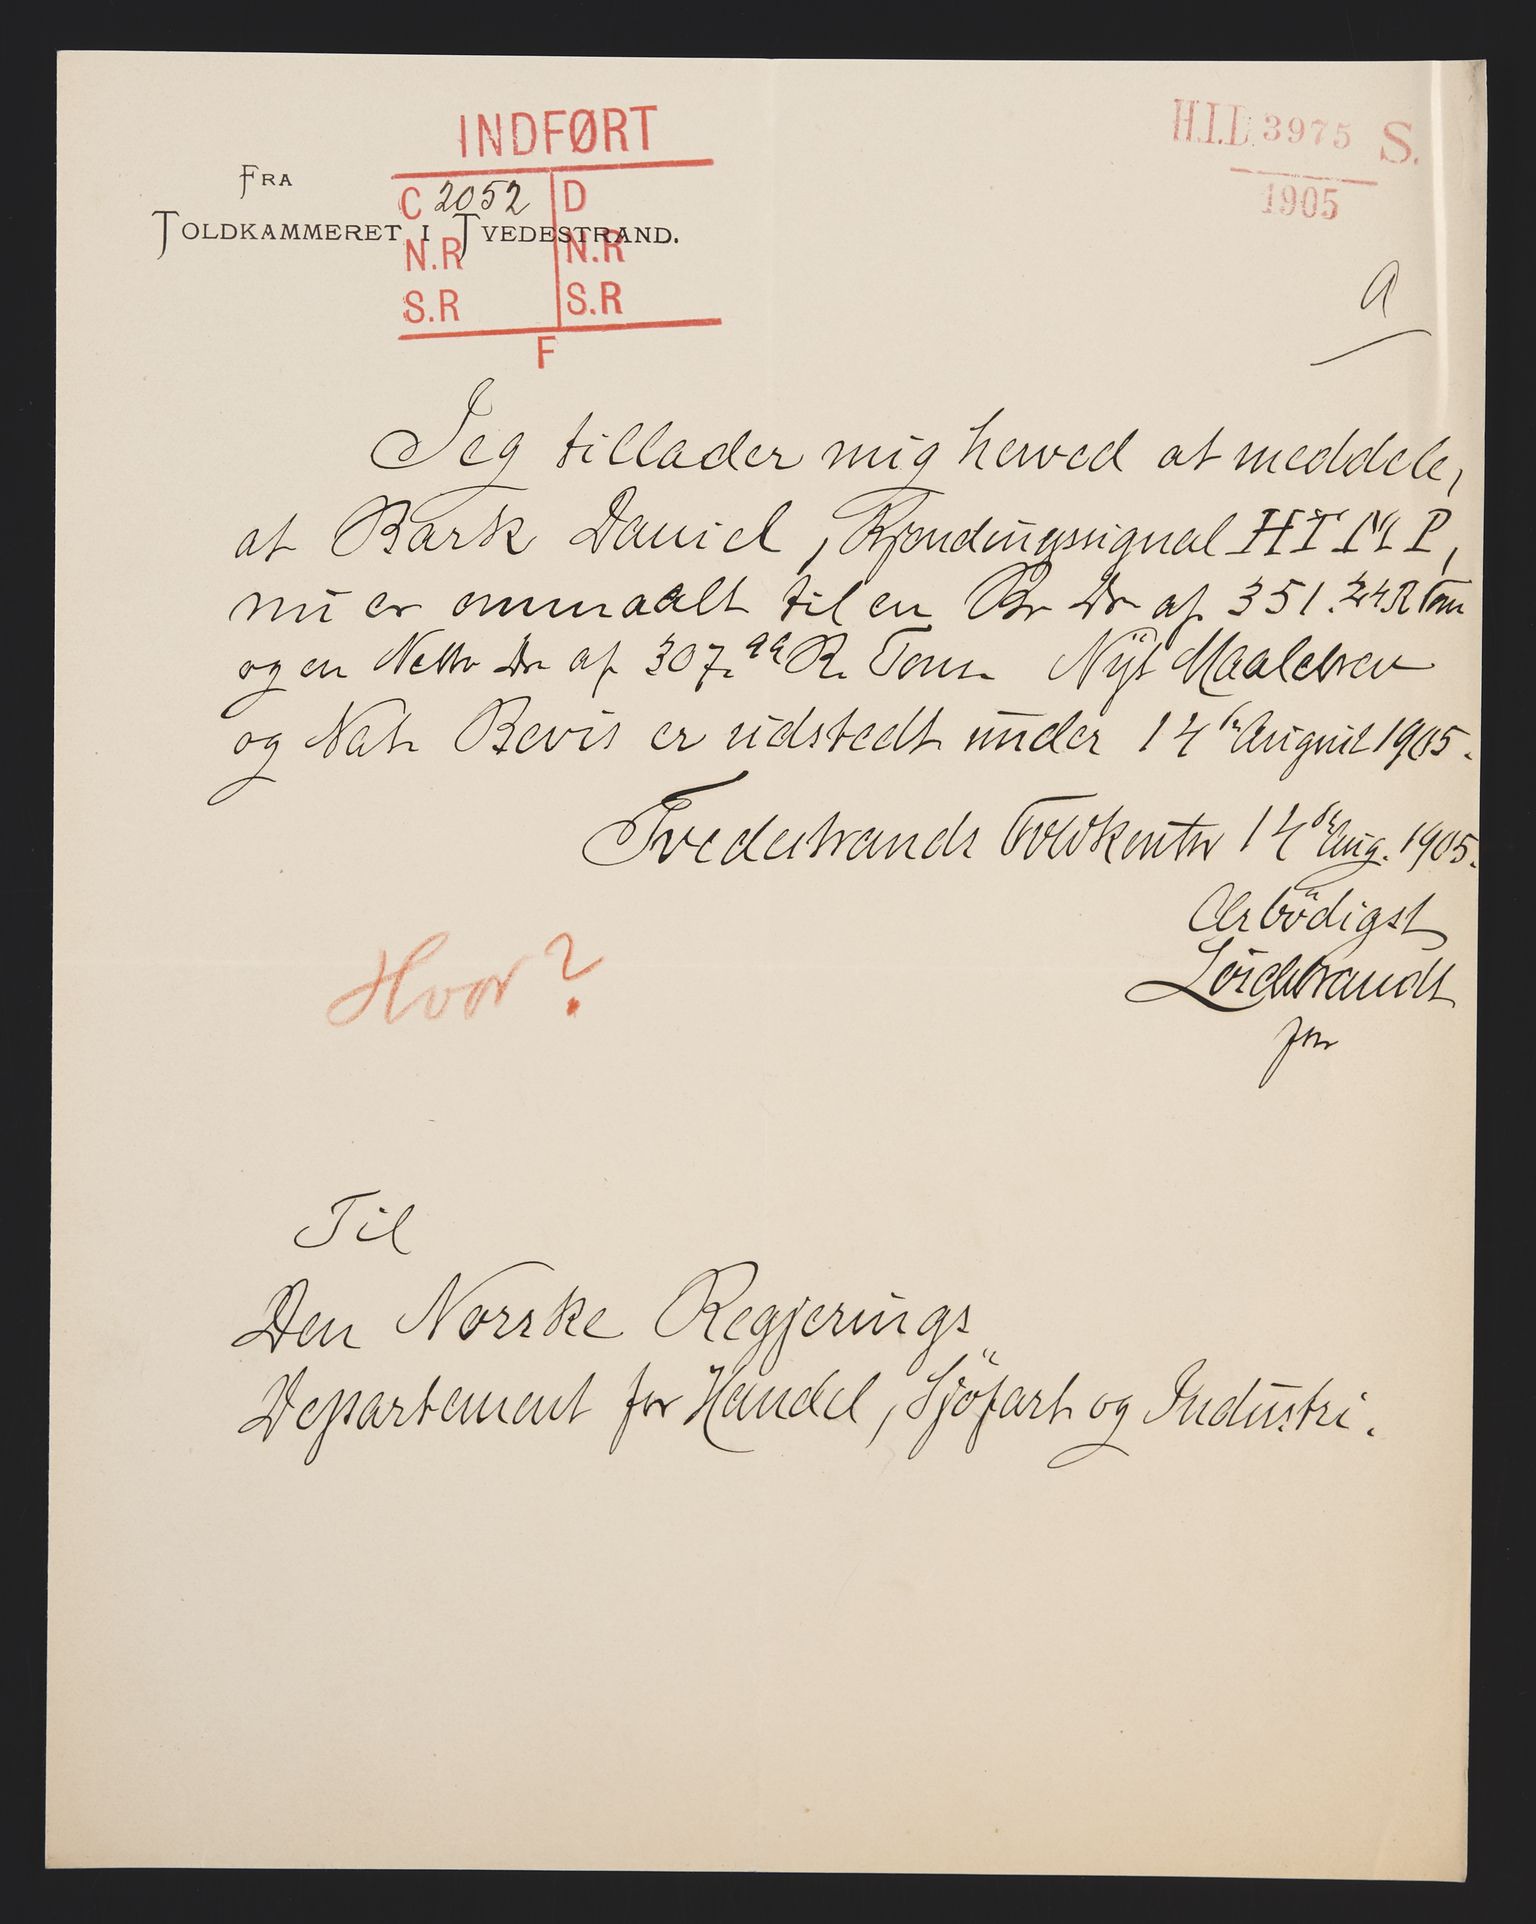 INDFØRT
H.I.D. 3975 S.
1905
FRA
C 2052 D
TOLDKAMMERET I TVEDESTRAND.
N.R N.R
S.R S.R
F
a
Jeg tillader mig herved at meddele,
at Bark Daniel, Kjendingssignal H T M P,
nu er ommaalt til en Br Dr af 351.24 R Tons
og en Netto Dr af 307.99 R. Tons. Nyt Maalebrev
og Nat. Bevis er udstedt under 14de August 1905.
Tvedestrands Toldkontor 14de Aug. 1905.
Ærbödigst
for
Hvor?
Til
Den Norske Regjerings
Departement for Handel, Sjöfart og Industri.